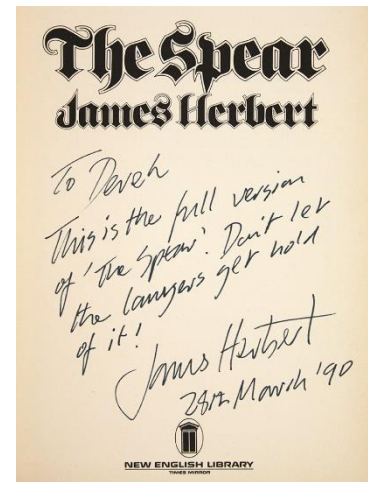 The Spear
James Herbert
To Derek
This is the full version
of 'The Spear'. Don't let
the lawyers get hold
of it!
James Herbert
28th March '90
NEW ENGLISH LIBRARY
TIMES MIRROR